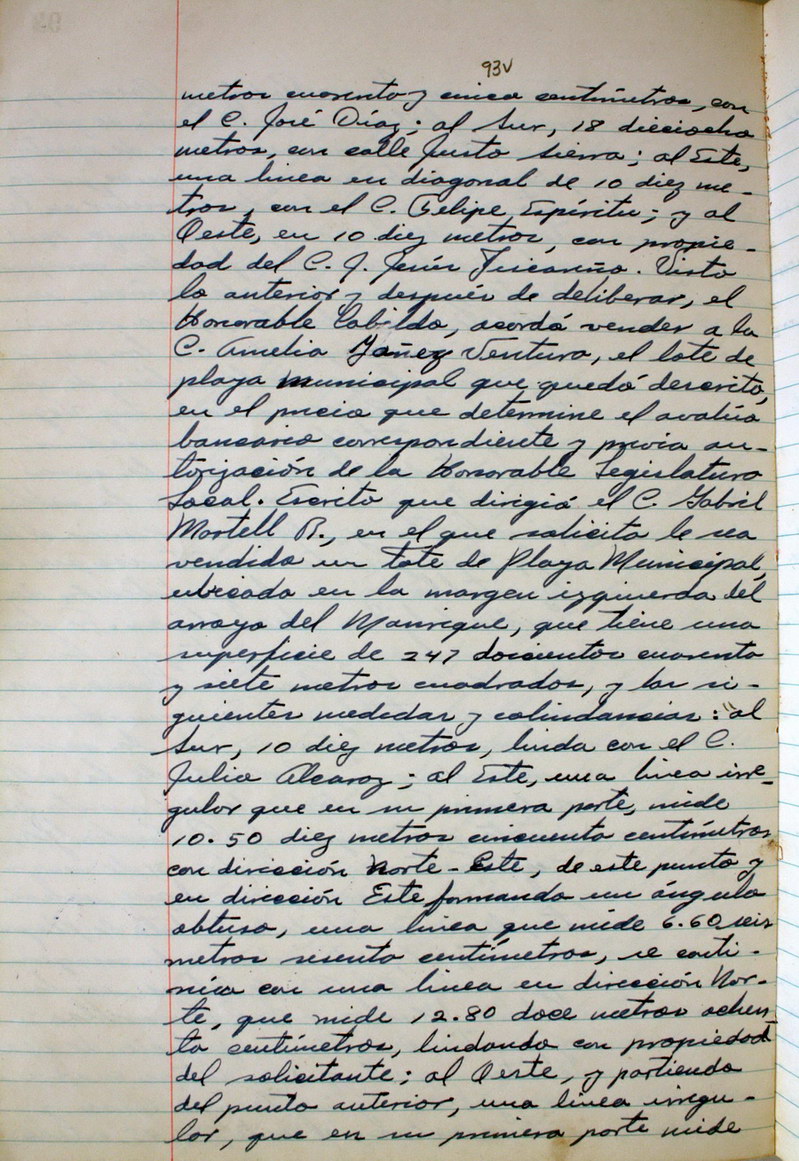 93v
metros cuarenta y cinco centímetros, con
el C. José Díaz; al Sur, 18 dieciocho
metros, con calle Justo Sierra; al Este,
una linea en diagonal de 10 diez me-
tros, con el C. Felipe Espíritu; y al
Oeste, en 10 diez metros, con propie-
dad del C. J. Jesús Tiscareño. Visto
lo anterior y después de deliberar, el
Honorable Cabildo, acordó vender a la
C. Amelia Yañez Ventura, el lote de
playa municipal que quedó descrito,
en el precio que determine el avalúo
bancario correspondiente y previa au-
torización de la Honorable Legislatura
Local. Escrito que dirigió el C. Gabril
Martell R., en el que solicita le sea
vendido un lote de Playa Municipal,
ubicado en la margen izquierda del
arroyo del Manrique, que tiene una
superficie de 247 doscientos cuarenta
y siete metros cuadrados, y las si-
guientes medidas y colindancias: "al
Sur, 10 diez metros, linda con el C.
Julio Alcaraz; al Este, una linea irre-
gular que en su primera parte, mide
10.50 diez metros cincuenta centímetros
con dirección Norte-Este, de este punto y
en dirección Este formando un ángulo
obtuso, una linea que mide 6.60 seis
metros sesenta centímetros, se conti-
núa con una linea en dirección Nor-
te, que mide 12.80 doce metros ochen-
ta centímetros, lindando con propiedad
del solicitante; al Oeste, y partiendo
del punto anterior, una linea irregu-
lar, que en su primera parte mide